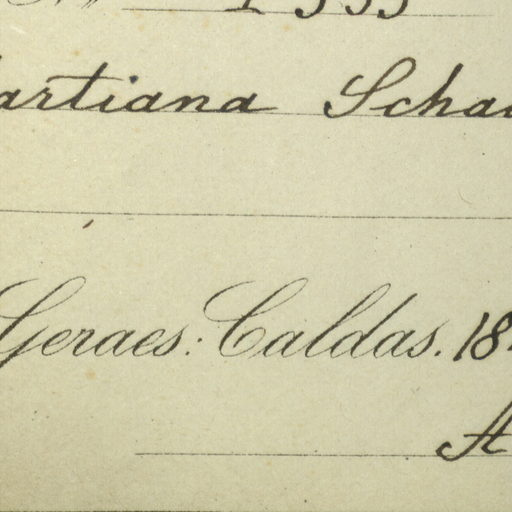 artiana Scha
Geraes: Caldas. 18
A